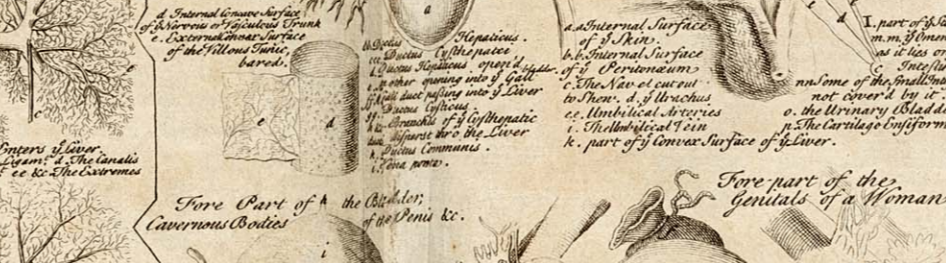 d Internal Concave Surface
of ÿ Nervous or Vasculous Trunk
e. External Convex Surface
of the Villous Tunic,
bared.
e
d
nters ÿ Liver.
Ligamt. d. The Canalis
ee &c. The Extremes
a
Hepaticus.
Ductus Cysthepatic
Ductus Hepaticus open'd
other opening into ÿ Gall bladder.
Gall duct passing into ÿ Liver
Ductus Cysticus.
Branches of ÿ Cysthepatic
disperst thro the Liver
Ductus Communis.
Vena porta.
Fore Part of the Bladder,
Cavernous Bodies of the Penis &c.
h
i
a.a Internal Surface
of ÿ Skin.
b.b. Internal Surface
of ÿ Peritoneum
c. The Navel cut out
to shew. d. ÿ Urachus
ee. Umbilical Arteries
i. The Umbilical Vein
k. part of ÿ Convex Surface of ÿ Liver.
c
d
I. part of ÿ
m.m. ÿ Omen
as it lies on
Intestin
nn Some of the Small Int
not cover'd by it.
o. the Urinary Bladd
p. The Cartilago Ensiform
Fore-part of the
Genitals of a Woman